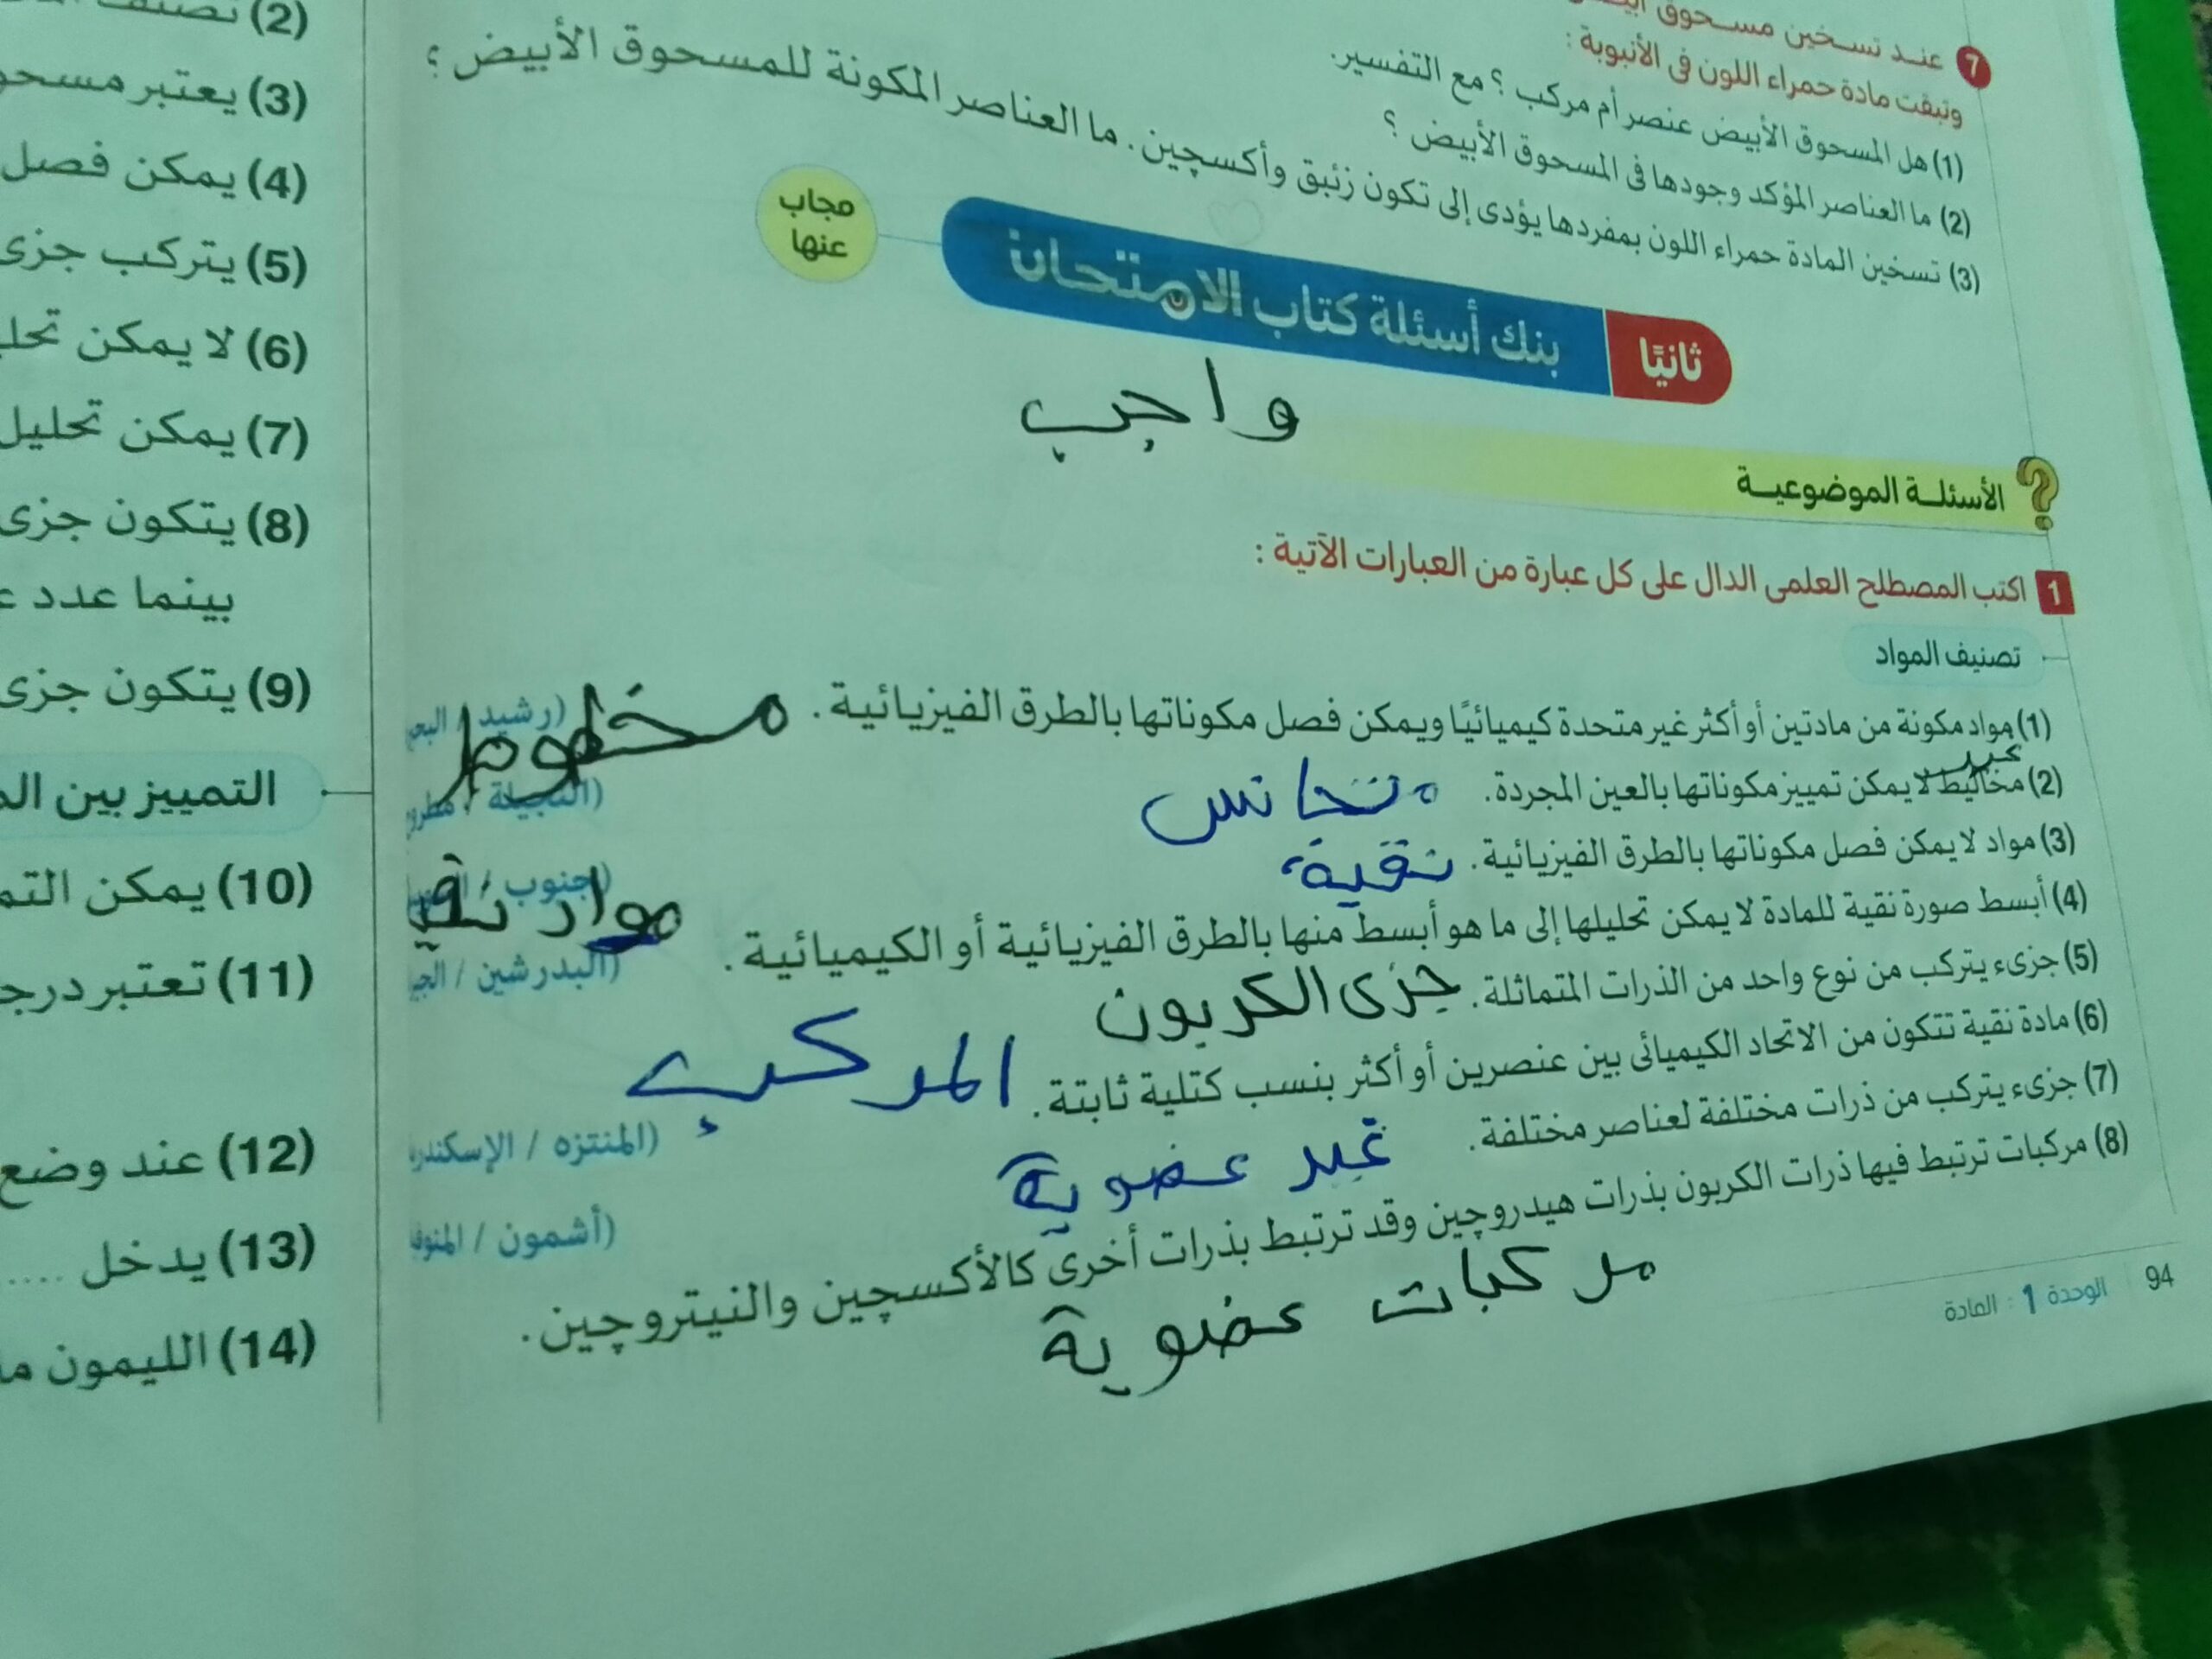 7 عند تسخين مسحوق
وتبقت مادة حمراء اللون فى الأنبوبة :
(1) هل المسحوق الأبيض عنصر أم مركب ؟ مع التفسير.
(2) ما العناصر المؤكد وجودها فى المسحوق الأبيض ؟
(3) تسخين المادة حمراء اللون بمفردها يؤدى إلى تكون زئبق وأكسچين. ما العناصر المكونة للمسحوق الأبيض ؟
ثانيًا بنك أسئلة كتاب الامتحان مجاب عنها
واجب
الأسئلـة الموضوعيـة
1 اكتب المصطلح العلمى الدال على كل عبارة من العبارات الآتية :
تصنيف المواد
(1) مواد مكونة من مادتين أو أكثر غير متحدة كيميائيًا ويمكن فصل مكوناتها بالطرق الفيزيائية. مخطوط (رشيد / البحي
(2) مخاليط لا يمكن تمييز مكوناتها بالعين المجردة. متجانس (النجيلة / مطرو
(3) مواد لا يمكن فصل مكوناتها بالطرق الفيزيائية. نقية (جنوب /
(4) أبسط صورة نقية للمادة لا يمكن تحليلها إلى ما هو أبسط منها بالطرق الفيزيائية أو الكيميائية. مواد نقية
(البدرشين / الجي
(5) جزىء يتركب من نوع واحد من الذرات المتماثلة. جزى الكربون
(6) مادة نقية تتكون من الاتحاد الكيميائى بين عنصرين أو أكثر بنسب كتلية ثابتة. المركب
(المنتزه / الإسكندري
(7) جزىء يتركب من ذرات مختلفة لعناصر مختلفة. غير عضوية
(أشمون / المنوف
(8) مركبات ترتبط فيها ذرات الكربون بذرات هيدروچين وقد ترتبط بذرات أخرى كالأكسچين والنيتروچين.
مركبات عضوية
94 الوحدة 1 : المادة
(2) تصنف
(3) يعتبر مسحو
(4) يمكن فصل
(5) يتركب جزى
(6) لا يمكن تحلي
(7) يمكن تحليل
(8) يتكون جزى
بينما عدد ع
(9) يتكون جزى
التمييز بين الم
(10) يمكن التم
(11) تعتبر درج
(12) عند وضع
(13) يدخل ....
(14) الليمون ما